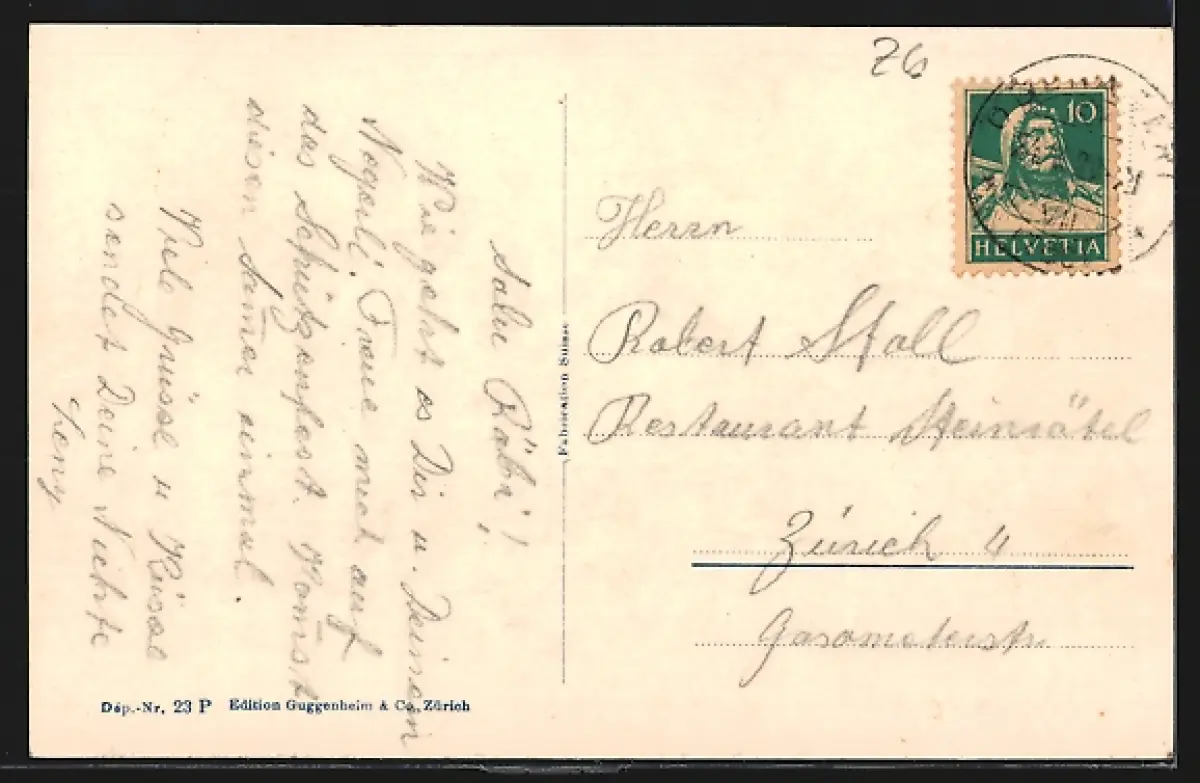 Salu Röbi!
Wie geht es Dir u. Deinem
Vogerli. Freue mich auf
das Schützenfest. Komst
diesen Samer einmal.
Viele Grüsse u Küsse
sendet Deine Nichte
Leny
Dép.-Nr. 23 P Edition Guggenheim & Co., Zürich
Fabrication Suisse
26
10
HELVETIA
Herrn
Robert Stoll
Restaurant Steinsätel
Zürich 4
Gasometerstr